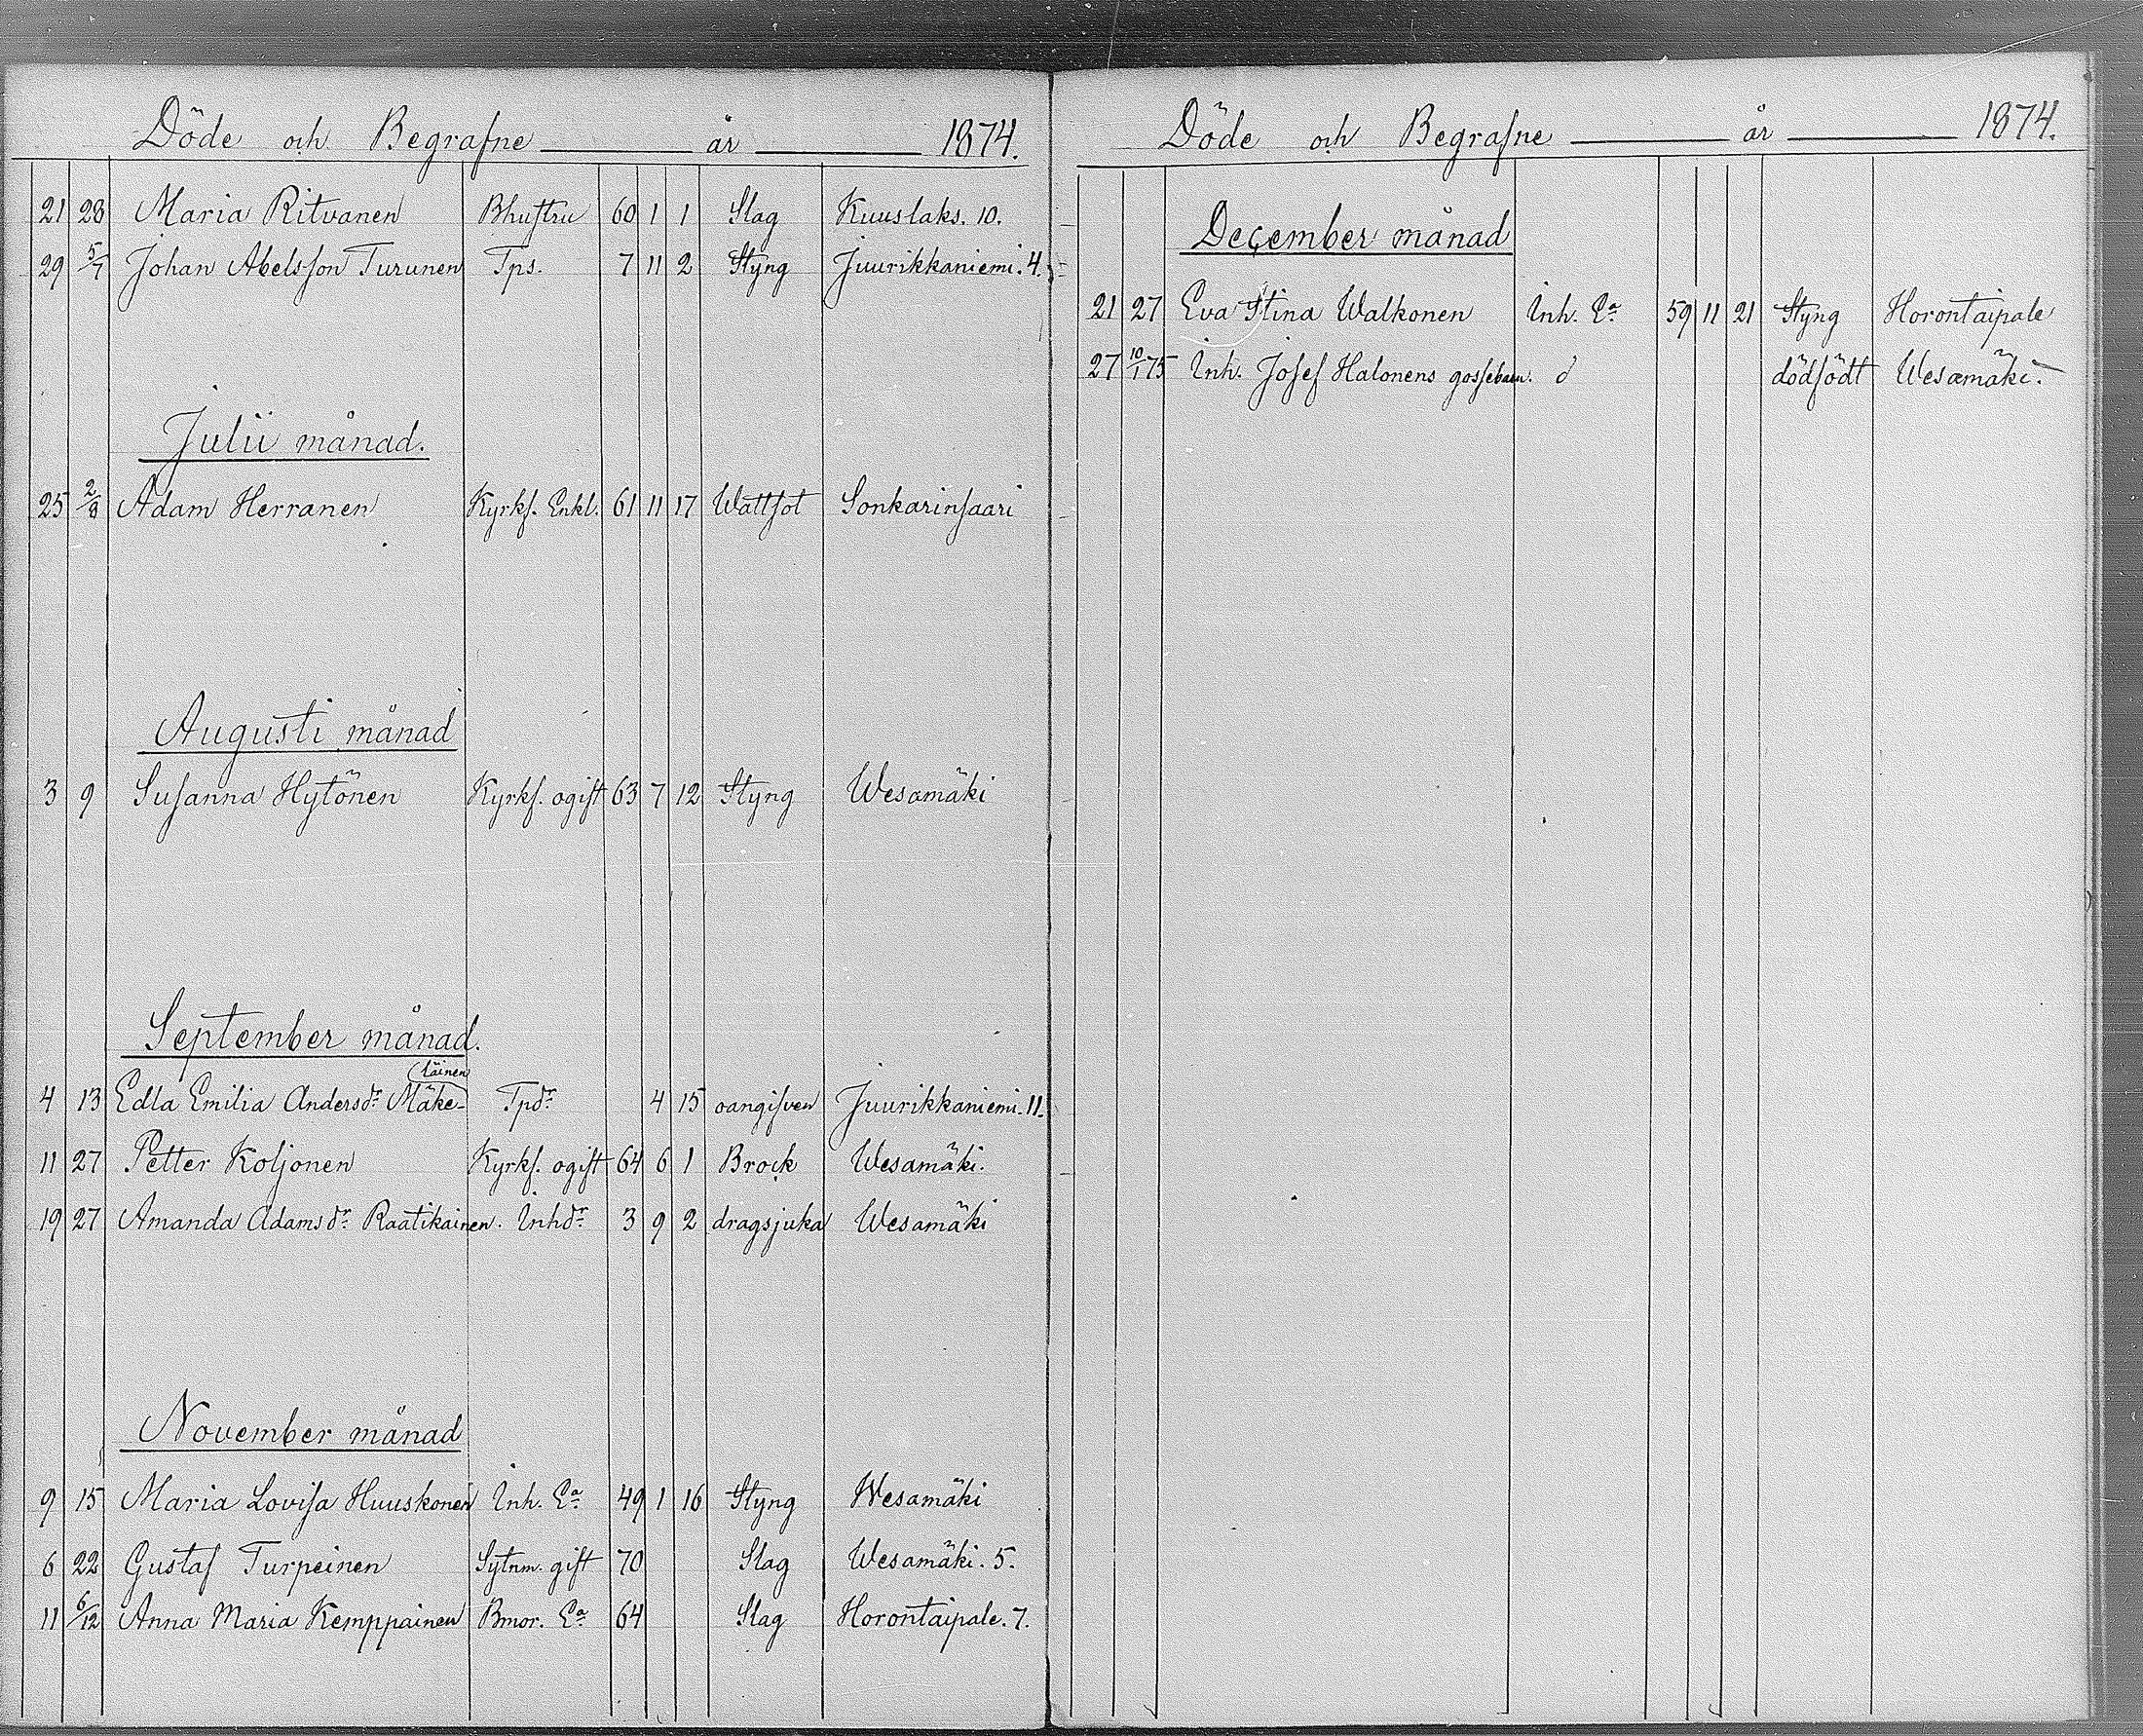 Döde och Begrafne år 1874.
21 28 Maria Ritvanen Bhustru 60 1 1 Slag Kuuslaks. 10.
29 5/7 Johan Abelsson Turunen Tps. 7 11 2 Styng Juurikkaniemi. 4.
Julii månad.
25 2/8 Adam Herranen Kyrkf. Enkl. 61 11 17 Wattsot Sonkarinsaari
Augusti månad
3 9 Susanna Hytönen Kyrkf. ogift 63 7 12 Styng Wesamäki
September månad.
läinen
4 13 Edla Emilia Andersdr Mäke- Tpdr 4 15 oangifven Juurikkaniemi. 11.
11 27 Petter Koljonen Kyrkf. ogift 64 6 1 Brock Wesamäki.
19 27 Amanda Adamsdr Raatikainen. Inhdr 3 9 2 dragsjuka Wesamäki
November månad
9 15 Maria Lovisa Huuskonen Inh. Ea 49 1 16 Styng Wesamäki
6 22 Gustaf Turpeinen Sytnm. gift 70 Slag Wesamäki. 5.
11 6/12 Anna Maria Kemppainen Bmor. Ea 64 Slag Horontaipale. 7.
Döde och Begrafne år 1874.
December månad
21 27 Eva Stina Walkonen Inh. Ea 59 11 21 Styng Horontaipale
27 10/1 75 Inh. Josef Halonens gossebarn. d dödfödt Wesamäki.